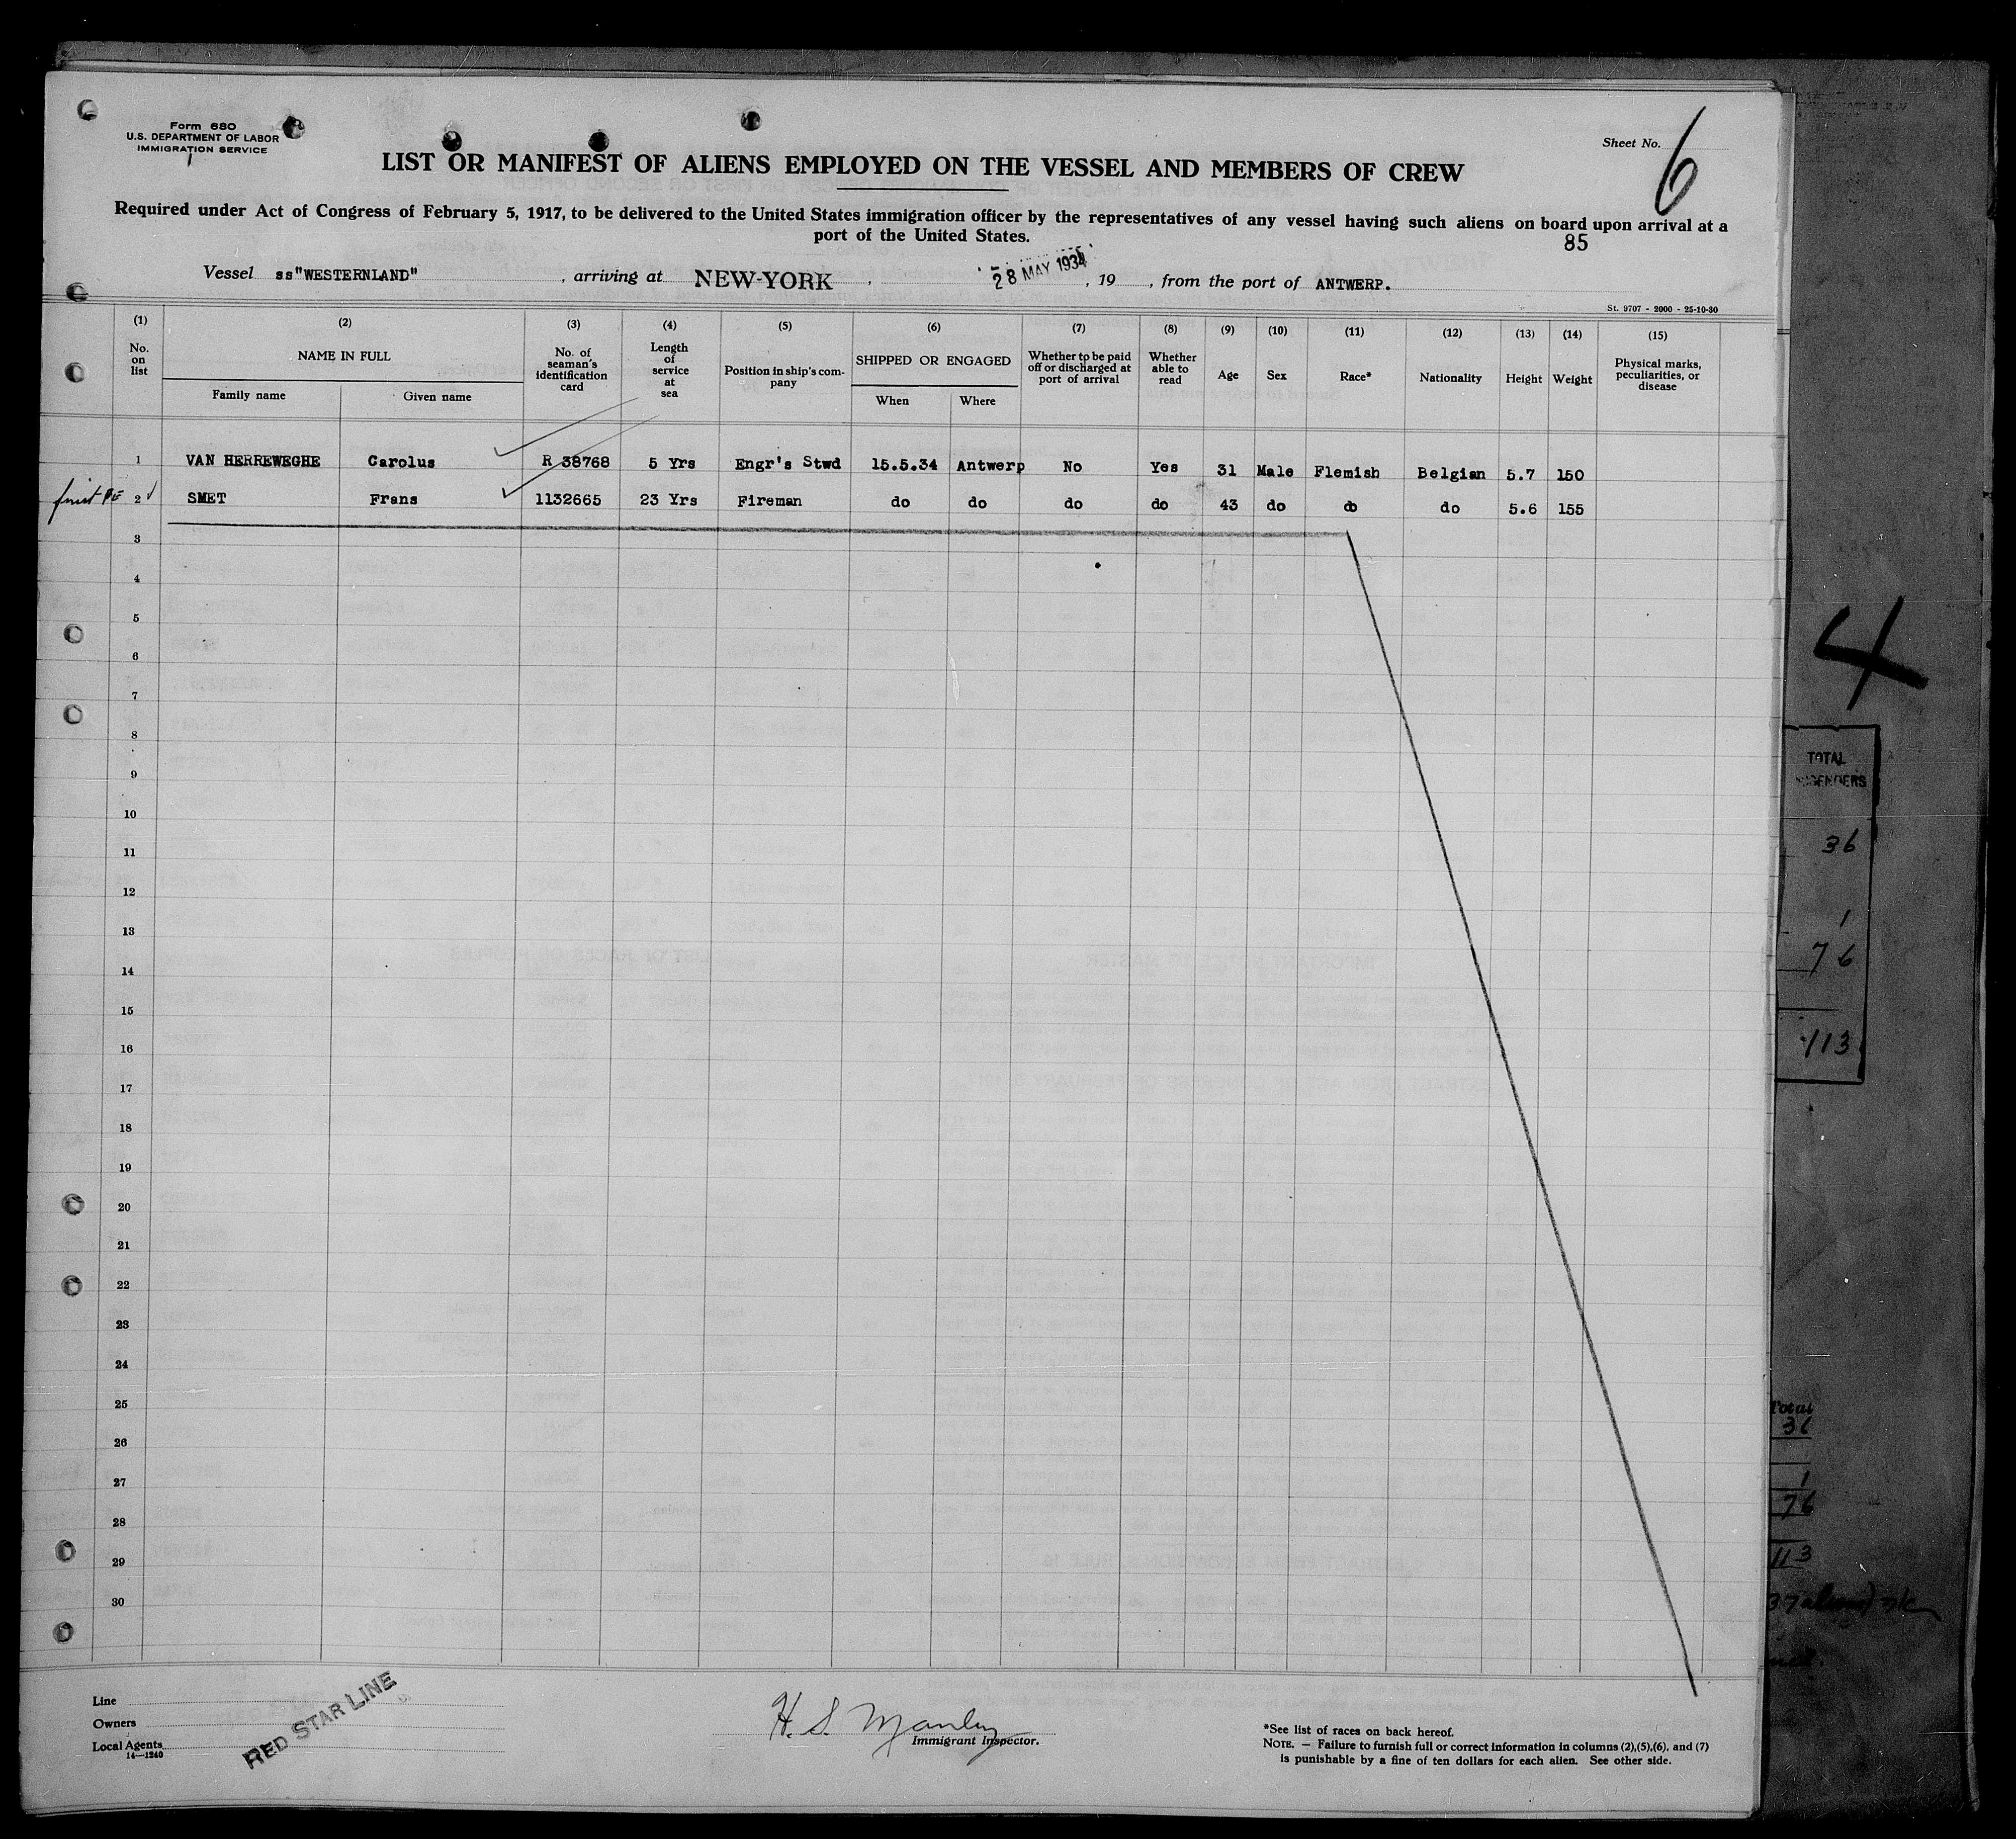 Form 680
U.S. DEPARTMENT OF LABOR
IMMIGRATION SERVICE
Sheet No. 6
LIST OR MANIFEST OF ALIENS EMPLOYED ON THE VESSEL AND MEMBERS OF CREW
Required under Act of Congress of February 5, 1917, to be delivered to the United States immigration officer by the representatives of any vessel having such aliens on board upon arrival at a
port of the United States.
85
Vessel ss"WESTERNLAND", arriving at NEW-YORK, 28 MAY 1934, 19 , from the port of ANTWERP.
St. 9707 - 2000 - 25-10-30
(1) (2) (3) (4) (5) (6) (7) (8) (9) (10) (11) (12) (13) (14) (15)
No. on list
NAME IN FULL
Family name
Given name
No. of seaman's identification card
Length of service at sea
Position in ship's company
SHIPPED OR ENGAGED
When
Where
Whether to be paid off or discharged at port of arrival
Whether able to read
Age
Sex
Race*
Nationality
Height
Weight
Physical marks, peculiarities, or disease
1 VAN HERREWEGHE Carolus R 38768 5 Yrs Engr's Stwd 15.5.34 Antwerp No Yes 31 Male Flemish Belgian 5.7 150
2 SMET Frans 1132665 23 Yrs Fireman do do do do 43 do do do 5.6 155
3
4
5
6
7
8
9
10
11
12
13
14
15
16
17
18
19
20
21
22
23
24
25
26
27
28
29
30
Line
Owners
Local Agents
14—1240
RED STAR LINE
H. S. Manley
Immigrant Inspector.
*See list of races on back hereof.
NOTE. — Failure to furnish full or correct information in columns (2),(5),(6), and (7)
is punishable by a fine of ten dollars for each alien. See other side.
4
TOTAL
36
1
76
113
Total
36
1
76
113